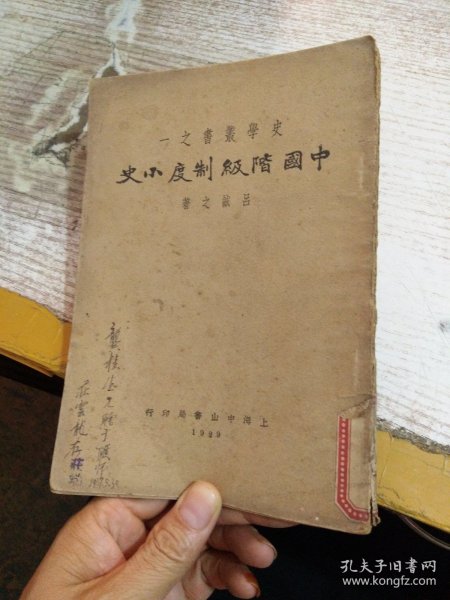 史學叢書之一
中國階級制度小史
呂誠之著
上海中山書局印行
1929
孔夫子旧书网
www.kongfz.com